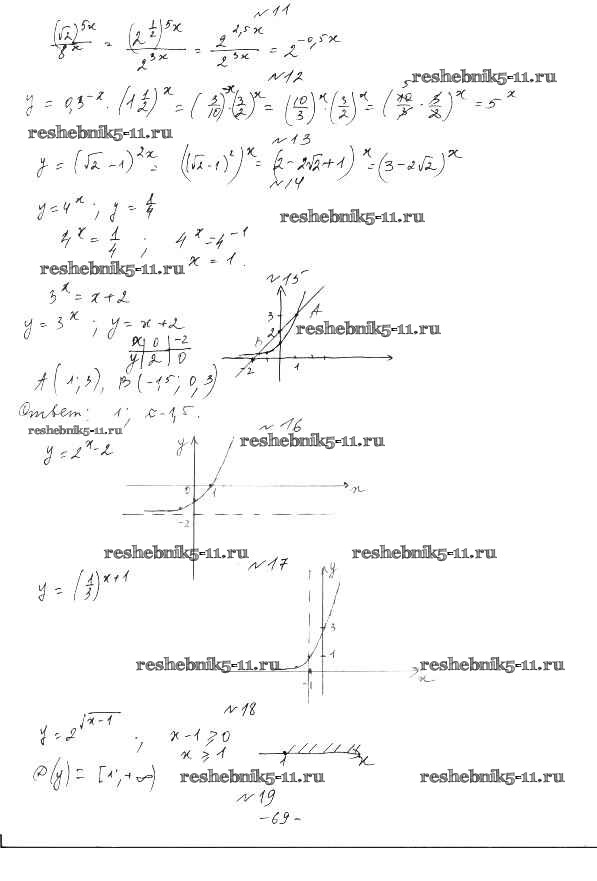 № 11
(√2)^5x / 8^x = (2^1/2)^5x / 2^3x = 2^2,5x / 2^3x = 2^-0,5x
№ 12
reshebnik5-11.ru
y = 0,3^-x · (1 1/2)^x = (3/10)^-x (3/2)^x = (10/3)^x · (3/2)^x = (10/3 · 3/2)^x = 5^x
reshebnik5-11.ru
№ 13
y = (√2 - 1)^2x = ((√2-1)^2)^x = (2 - 2√2 + 1)^x = (3 - 2√2)^x
№ 14
y = 4^x ; y = 1/4
reshebnik5-11.ru
4^x = 1/4 ; 4^x = 4^-1
reshebnik5-11.ru
x = 1.
№ 15
3^x = x + 2
y = 3^x ; y = x + 2
3 A
reshebnik5-11.ru
2
B
x 0 -2
y 2 0
-2 1
A (1; 3), B (-1,5; 0,3)
Ответ: 1; x-1,5.
reshebnik5-11.ru
№ 16
reshebnik5-11.ru
y = 2^x - 2
y
0 1 x
-2
reshebnik5-11.ru reshebnik5-11.ru
№ 17
y = (1/3)^x+1
y
3
1
reshebnik5-11.ru reshebnik5-11.ru
-1 x
№ 18
y = 2^√x-1 ; x - 1 ≥ 0
x ≥ 1
1 x
D(y) = [1; +∞)
reshebnik5-11.ru reshebnik5-11.ru
№ 19
-69-